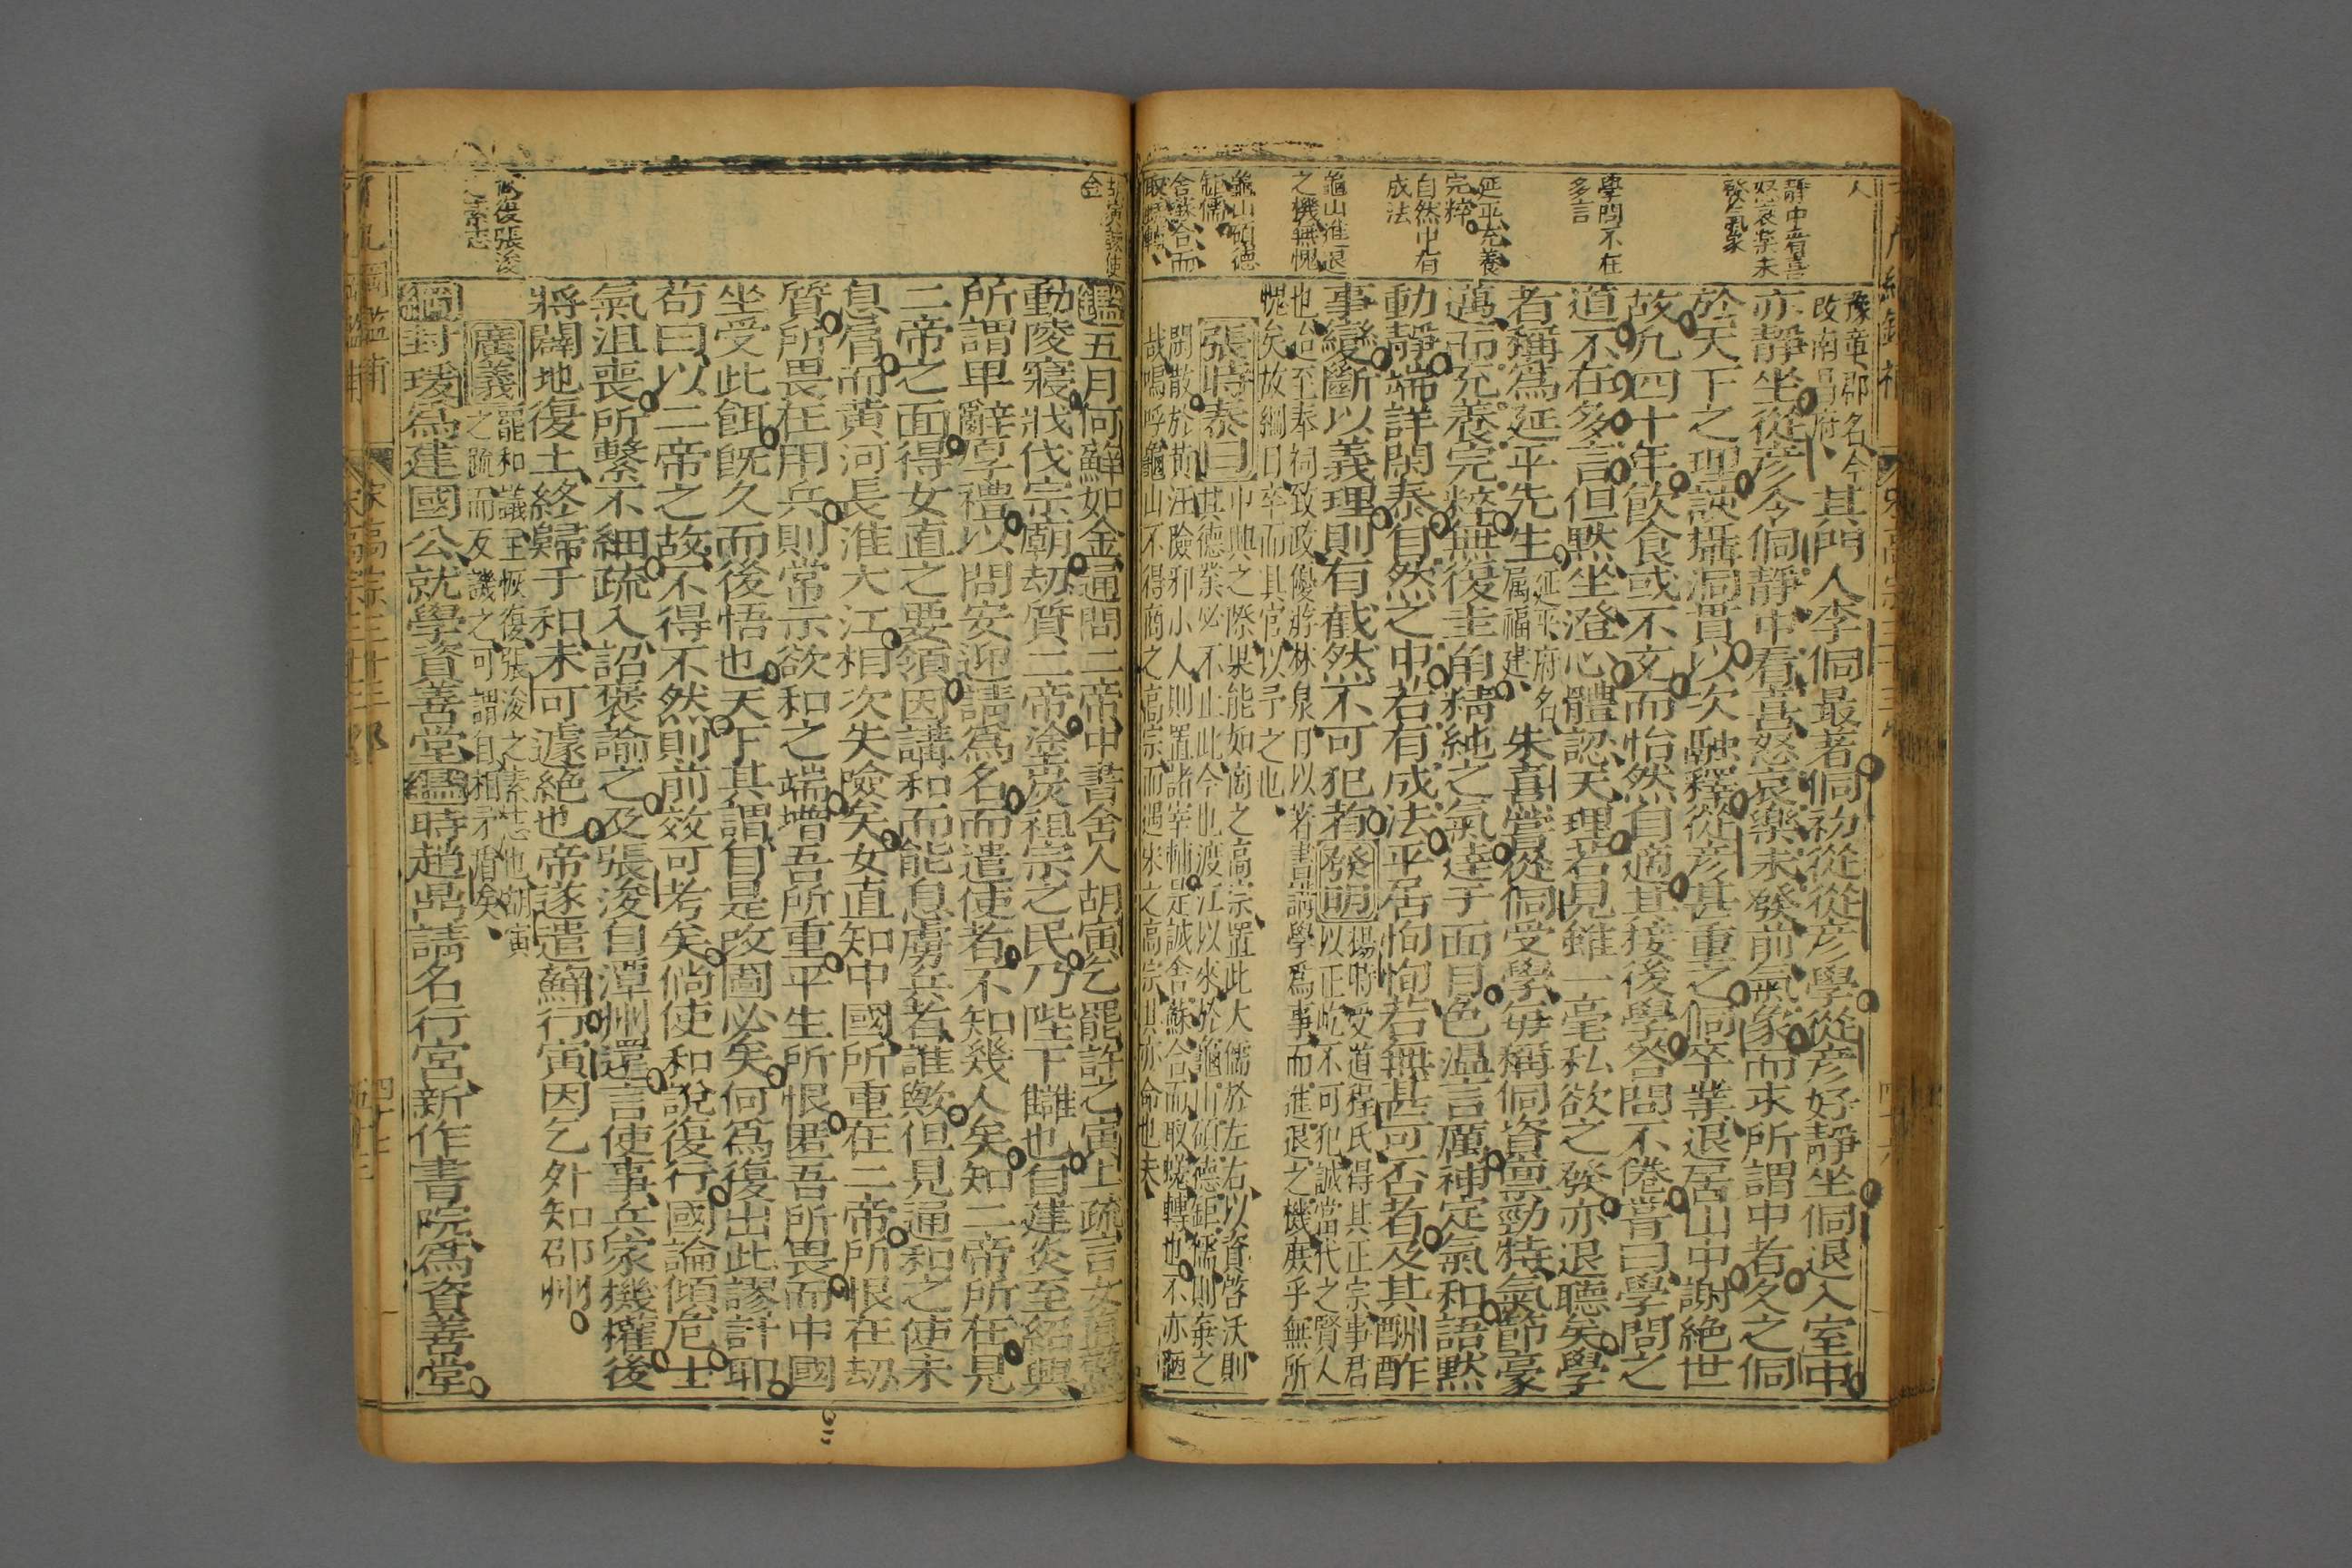 人
靜中看喜
怒哀樂未
發氣象
學問不在
多言
延平充養
完粹
自然中有
成法
龜山進退
之機無愧
龜山碩德
鉅儒
舍蘇合而
取蜣轉
豫章郡名今
改南昌府
其門人李侗最著侗初從從彥學從彥好靜坐侗退入室中
亦靜坐從彥令侗靜中看喜怒哀樂未發前氣象而求所謂中者久之侗
於天下之理該攝洞貫以次融釋從彥甚重之侗卒業退居山中謝絕世
故凡四十年飲食或不充而怡然自適其接後學答問不倦嘗曰學問之
道不在多言但默坐澄心體認天理若見雖一毫私欲之發亦退聽矣學
者稱爲延平先生
延平府名
属福建
朱熹嘗從侗受學每稱侗資稟勁特氣節豪
邁而充養完粹無復圭角精純之氣達于面目色溫言厲神定氣和語默
動靜端詳閒泰自然之中若有成法平居恂恂若無甚可否者及其酬酢
事變斷以義理則有截然不可犯者
發明
楊時受道程氏得其正宗事君
以正屹不可犯誠當代之賢人
也迨至奉祠致政優游林泉日以若書講學爲事而進退之機庶乎無所
愧矣故綱目卒而具官以予之也
張時泰曰
中興之際果能如啇之高宗置此大儒於左右以資啓沃則
其德業必不止此今也渡江以來於龜山碩德鉅儒則棄之
閒散於黃汪險邪小人則置諸宰輔是誠舍蘇合而取蜣轉也不亦陋
哉嗚呼龜山不得啇之高宗而遇宋之高宗其亦命也夫
胡寅諫使
金
鑑五月何蘚如金通問二帝中書舍人胡寅乞罷許之寅上疏言女真驚
動陵寢戕伐宗廟劫質二帝塗炭祖宗之民乃陛下讎也自建炎至紹興
所謂卑辭厚禮以問安迎請爲名而遣使者不知幾人矣知二帝所在見
二帝之面得女直之要領因講和而能息虜兵者誰歟但見通和之使未
息肩而黃河長淮大江相次失險矣女直知中國所重在二帝所恨在劫
質所畏在用兵則常示欲和之端增吾所重平生所恨匿吾所畏而中國
坐受此餌旣久而後悟也天下其謂自是改圖必矣何爲復出此謬計耶
苟曰以二帝之故不得不然則前效可考矣倘使和說復行國論傾危士
氣沮喪所繫不細疏入詔褒諭之及張浚自潭州還言使事兵家機權後
將闢地復土終歸于和未可遽絕也帝遂遣蘚行寅因乞外知邵州
恢復張浚
之素志
廣義
罷和議主恢復張浚之素志也胡寅
之疏而反譏之可謂自相矛盾矣
綱封瑗爲建國公就學資善堂鑑時趙鼎請名行宮新作書院爲資善堂